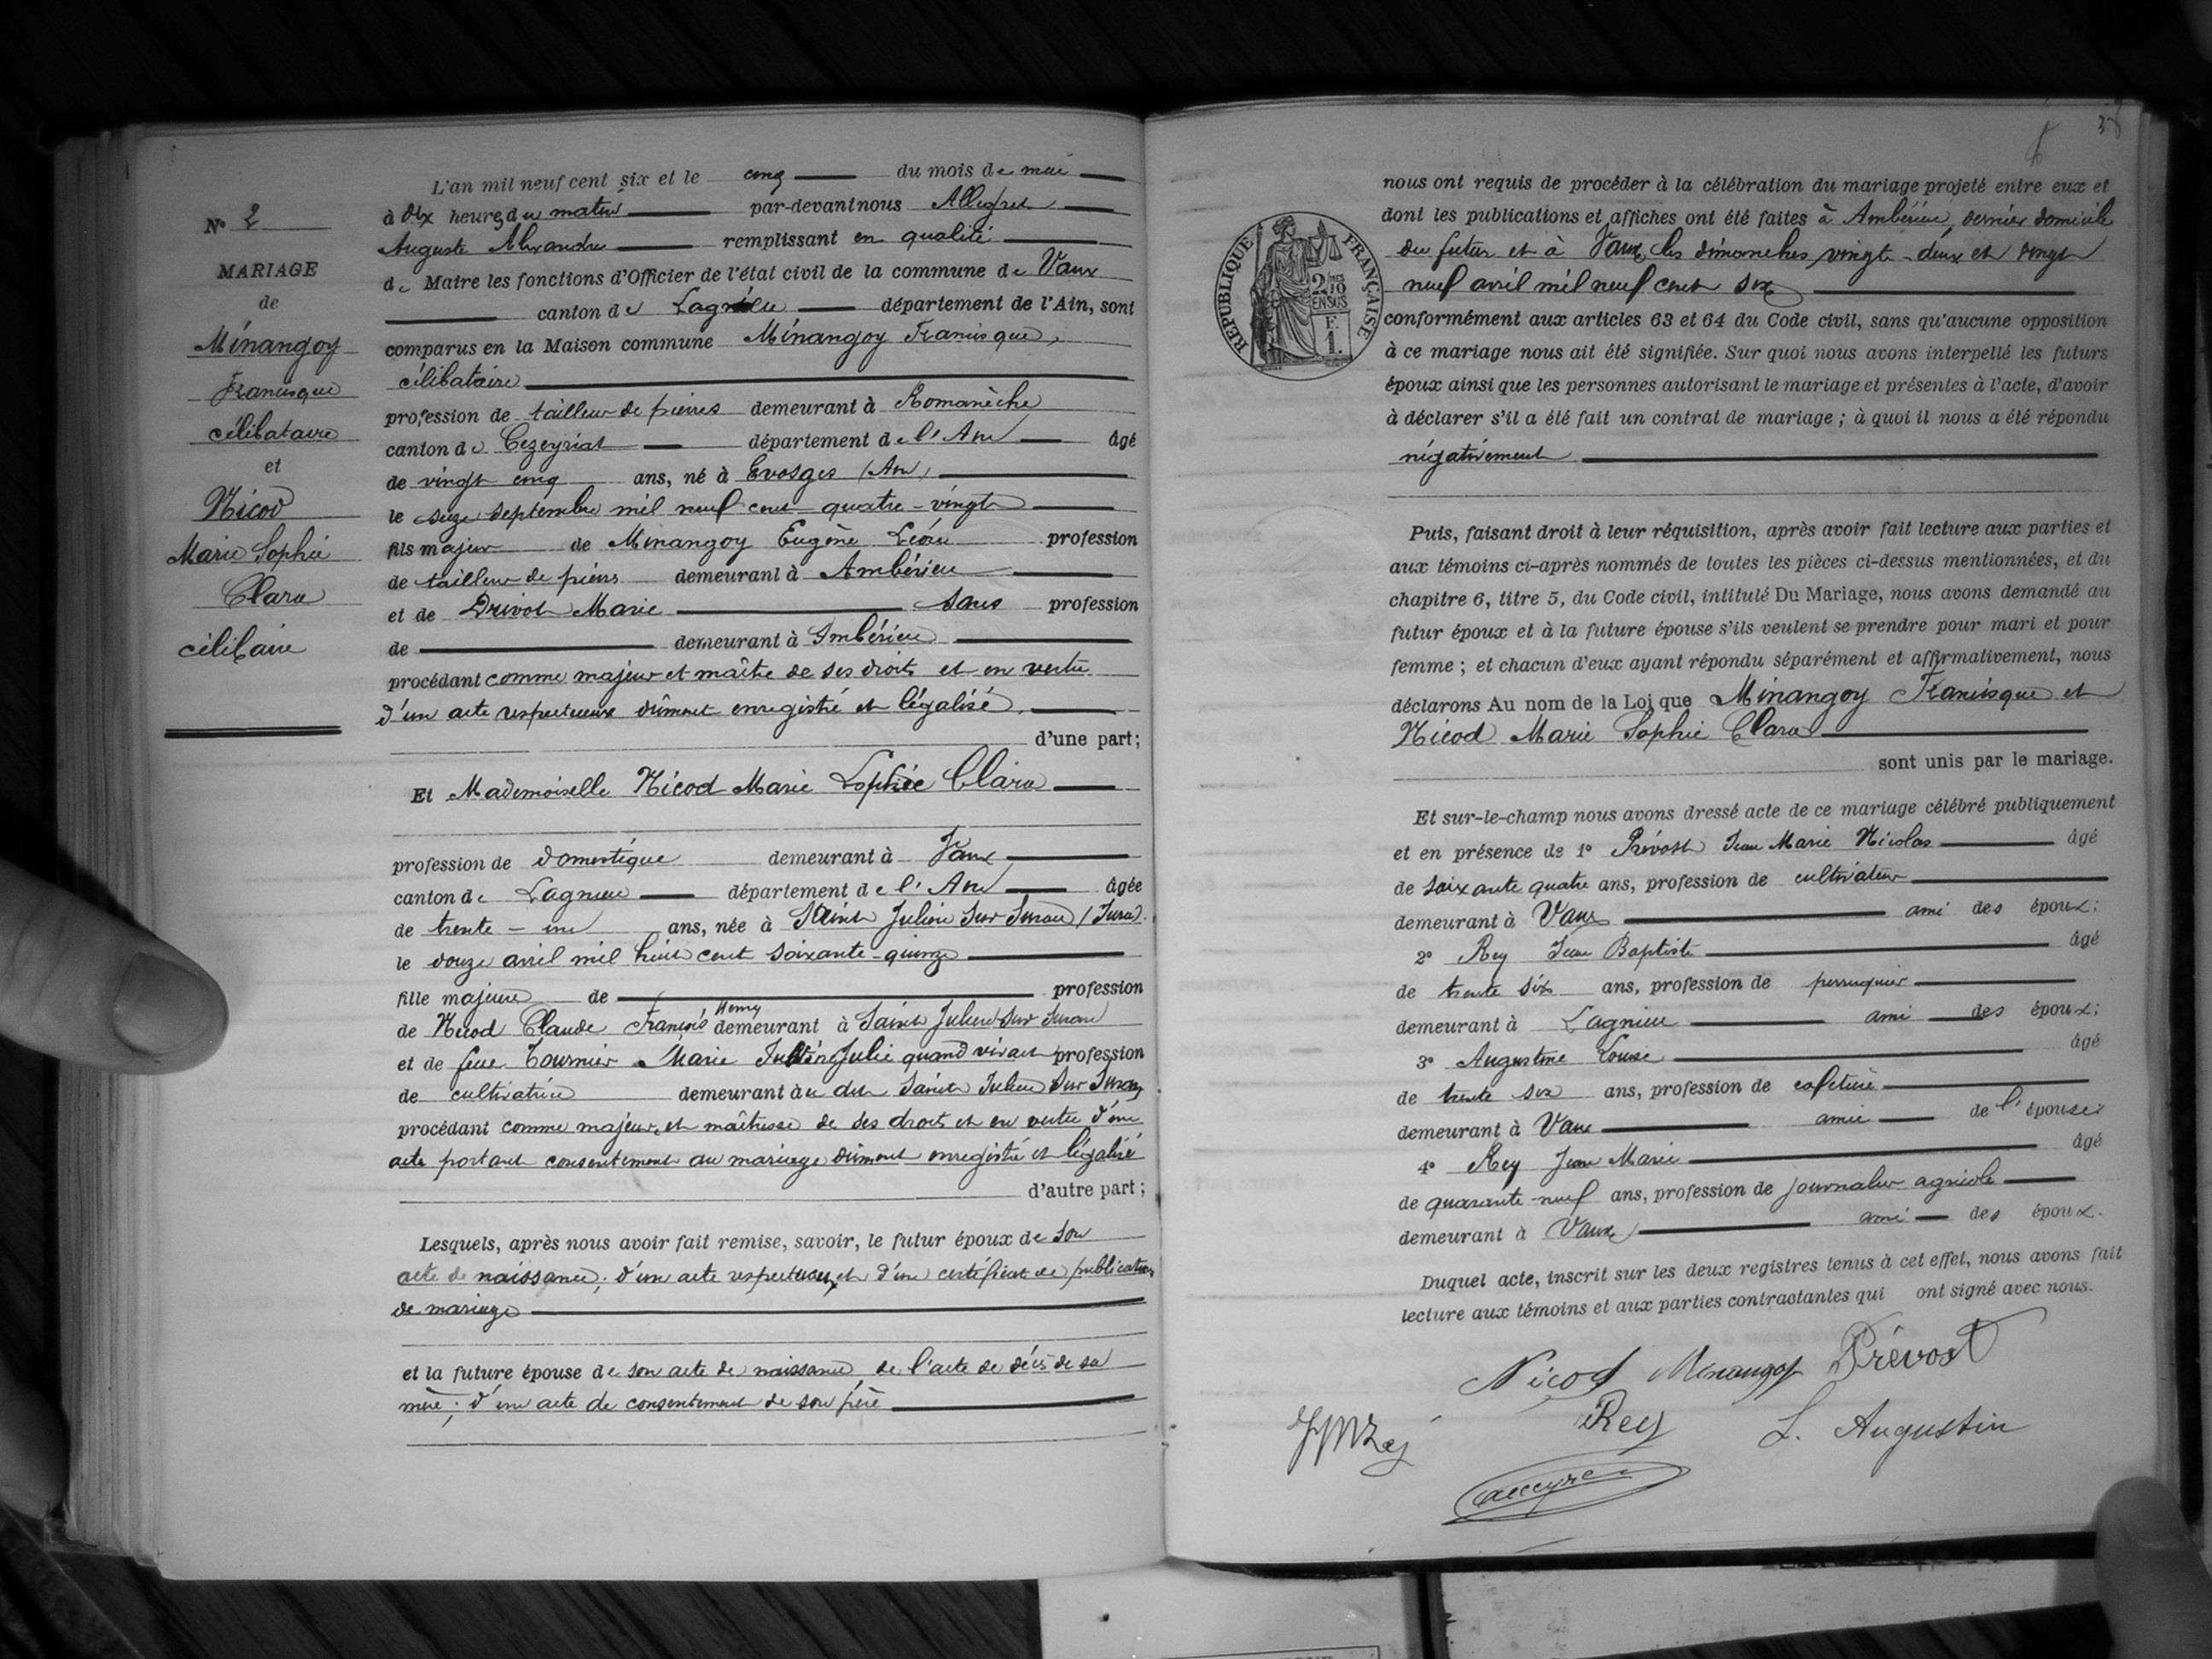 N° 2
MARIAGE
de
Minangoy
Francisque
célibataire
et
Nicod
Marie Sophie
Clara
célibaire
L'an mil neuf cent six et le cinq du mois de mai
à dix heures du matin par-devant nous Allegret
Auguste Alexandre remplissant en qualité
de Maire les fonctions d'Officier de l'état civil de la commune de Vaux
canton de Lagnieu département de l'Ain, sont
comparus en la Maison commune Minangoy Francisque,
célibataire
profession de tailleur de pierres demeurant à Romanèche
canton de Cezeyriat département de l'Ain âgé
de vingt cinq ans, né à Evosges (Ain)
le seize septembre mil neuf cent quatre-vingt
fils majeur de Minangoy Eugène Léon profession
de tailleur de pierres demeurant à Ambérieu
et de Drivot Marie sans profession
de demeurant à Ambérieu
procédant comme majeur et maître de ses droits et en vertu
d'un acte respectueux dûment enregistré et légalisé.
d'une part;
Et Mademoiselle Nicod Marie Sophie Clara
profession de domestique demeurant à Vaux
canton de Lagnieu département de l'Ain âgée
de trente-un ans, née à Saint Julien sur Suran (Jura)
le douze avril mil huit cent soixante-quinze
fille majeure de profession
de Nicod Claude François Henry demeurant à Saint Julien sur Suran
et de feue Tournier Marie Julie quand vivait profession
de cultivatrice demeurant au dit Saint Julien sur Suran
procédant comme majeure et maîtresse de ses droits et en vertu d'un
acte portant consentement au mariage dûment enregistré et légalisé
d'autre part;
Lesquels, après nous avoir fait remise, savoir, le futur époux de son
acte de naissance; d'un acte respectueux et d'un certificat de publication
de mariage
et la future épouse de son acte de naissance de l'acte de décès de sa
mère; d'un acte de consentement de son père
38
RÉPUBLIQUE FRANÇAISE
2/10
EN SUS
F.
1.
nous ont requis de procéder à la célébration du mariage projeté entre eux et
dont les publications et affiches ont été faites à Ambérieu, dernier domicile
du futur et à Vaux les dimanches vingt-deux et vingt
neuf avril mil neuf cent six
conformément aux articles 63 et 64 du Code civil, sans qu'aucune opposition
à ce mariage nous ait été signifiée. Sur quoi nous avons interpellé les futurs
époux ainsi que les personnes autorisant le mariage et présentes à l'acte, d'avoir
à déclarer s'il a été fait un contrat de mariage; à quoi il nous a été répondu
négativement
Puis, faisant droit à leur réquisition, après avoir fait lecture aux parties et
aux témoins ci-après nommés de toutes les pièces ci-dessus mentionnées, et du
chapitre 6, titre 5, du Code civil, intitulé Du Mariage, nous avons demandé au
futur époux et à la future épouse s'ils veulent se prendre pour mari et pour
femme; et chacun d'eux ayant répondu séparément et affirmativement, nous
déclarons Au nom de la Loi que Minangoy Francisque et
Nicod Marie Sophie Clara
sont unis par le mariage.
Et sur-le-champ nous avons dressé acte de ce mariage célébré publiquement
et en présence de 1° Prévost Jean Marie Nicolas âgé
de soixante quatre ans, profession de cultivateur
demeurant à Vaux ami des époux;
2° Rey Jean Baptiste âgé
de trente six ans, profession de perruquier
demeurant à Lagnieu ami des époux;
3° Augustine Louise âgé
de trente six ans, profession de cafetière
demeurant à Vaux amie de l'épouse;
4° Rey Jean Marie âgé
de quarante-neuf ans, profession de journalier agricole
demeurant à Vaux ami des époux.
Duquel acte, inscrit sur les deux registres tenus à cet effet, nous avons fait
lecture aux témoins et aux parties contractantes qui ont signé avec nous.
Nicod Minangoy Prévost
JMRey Rey L. Augustin